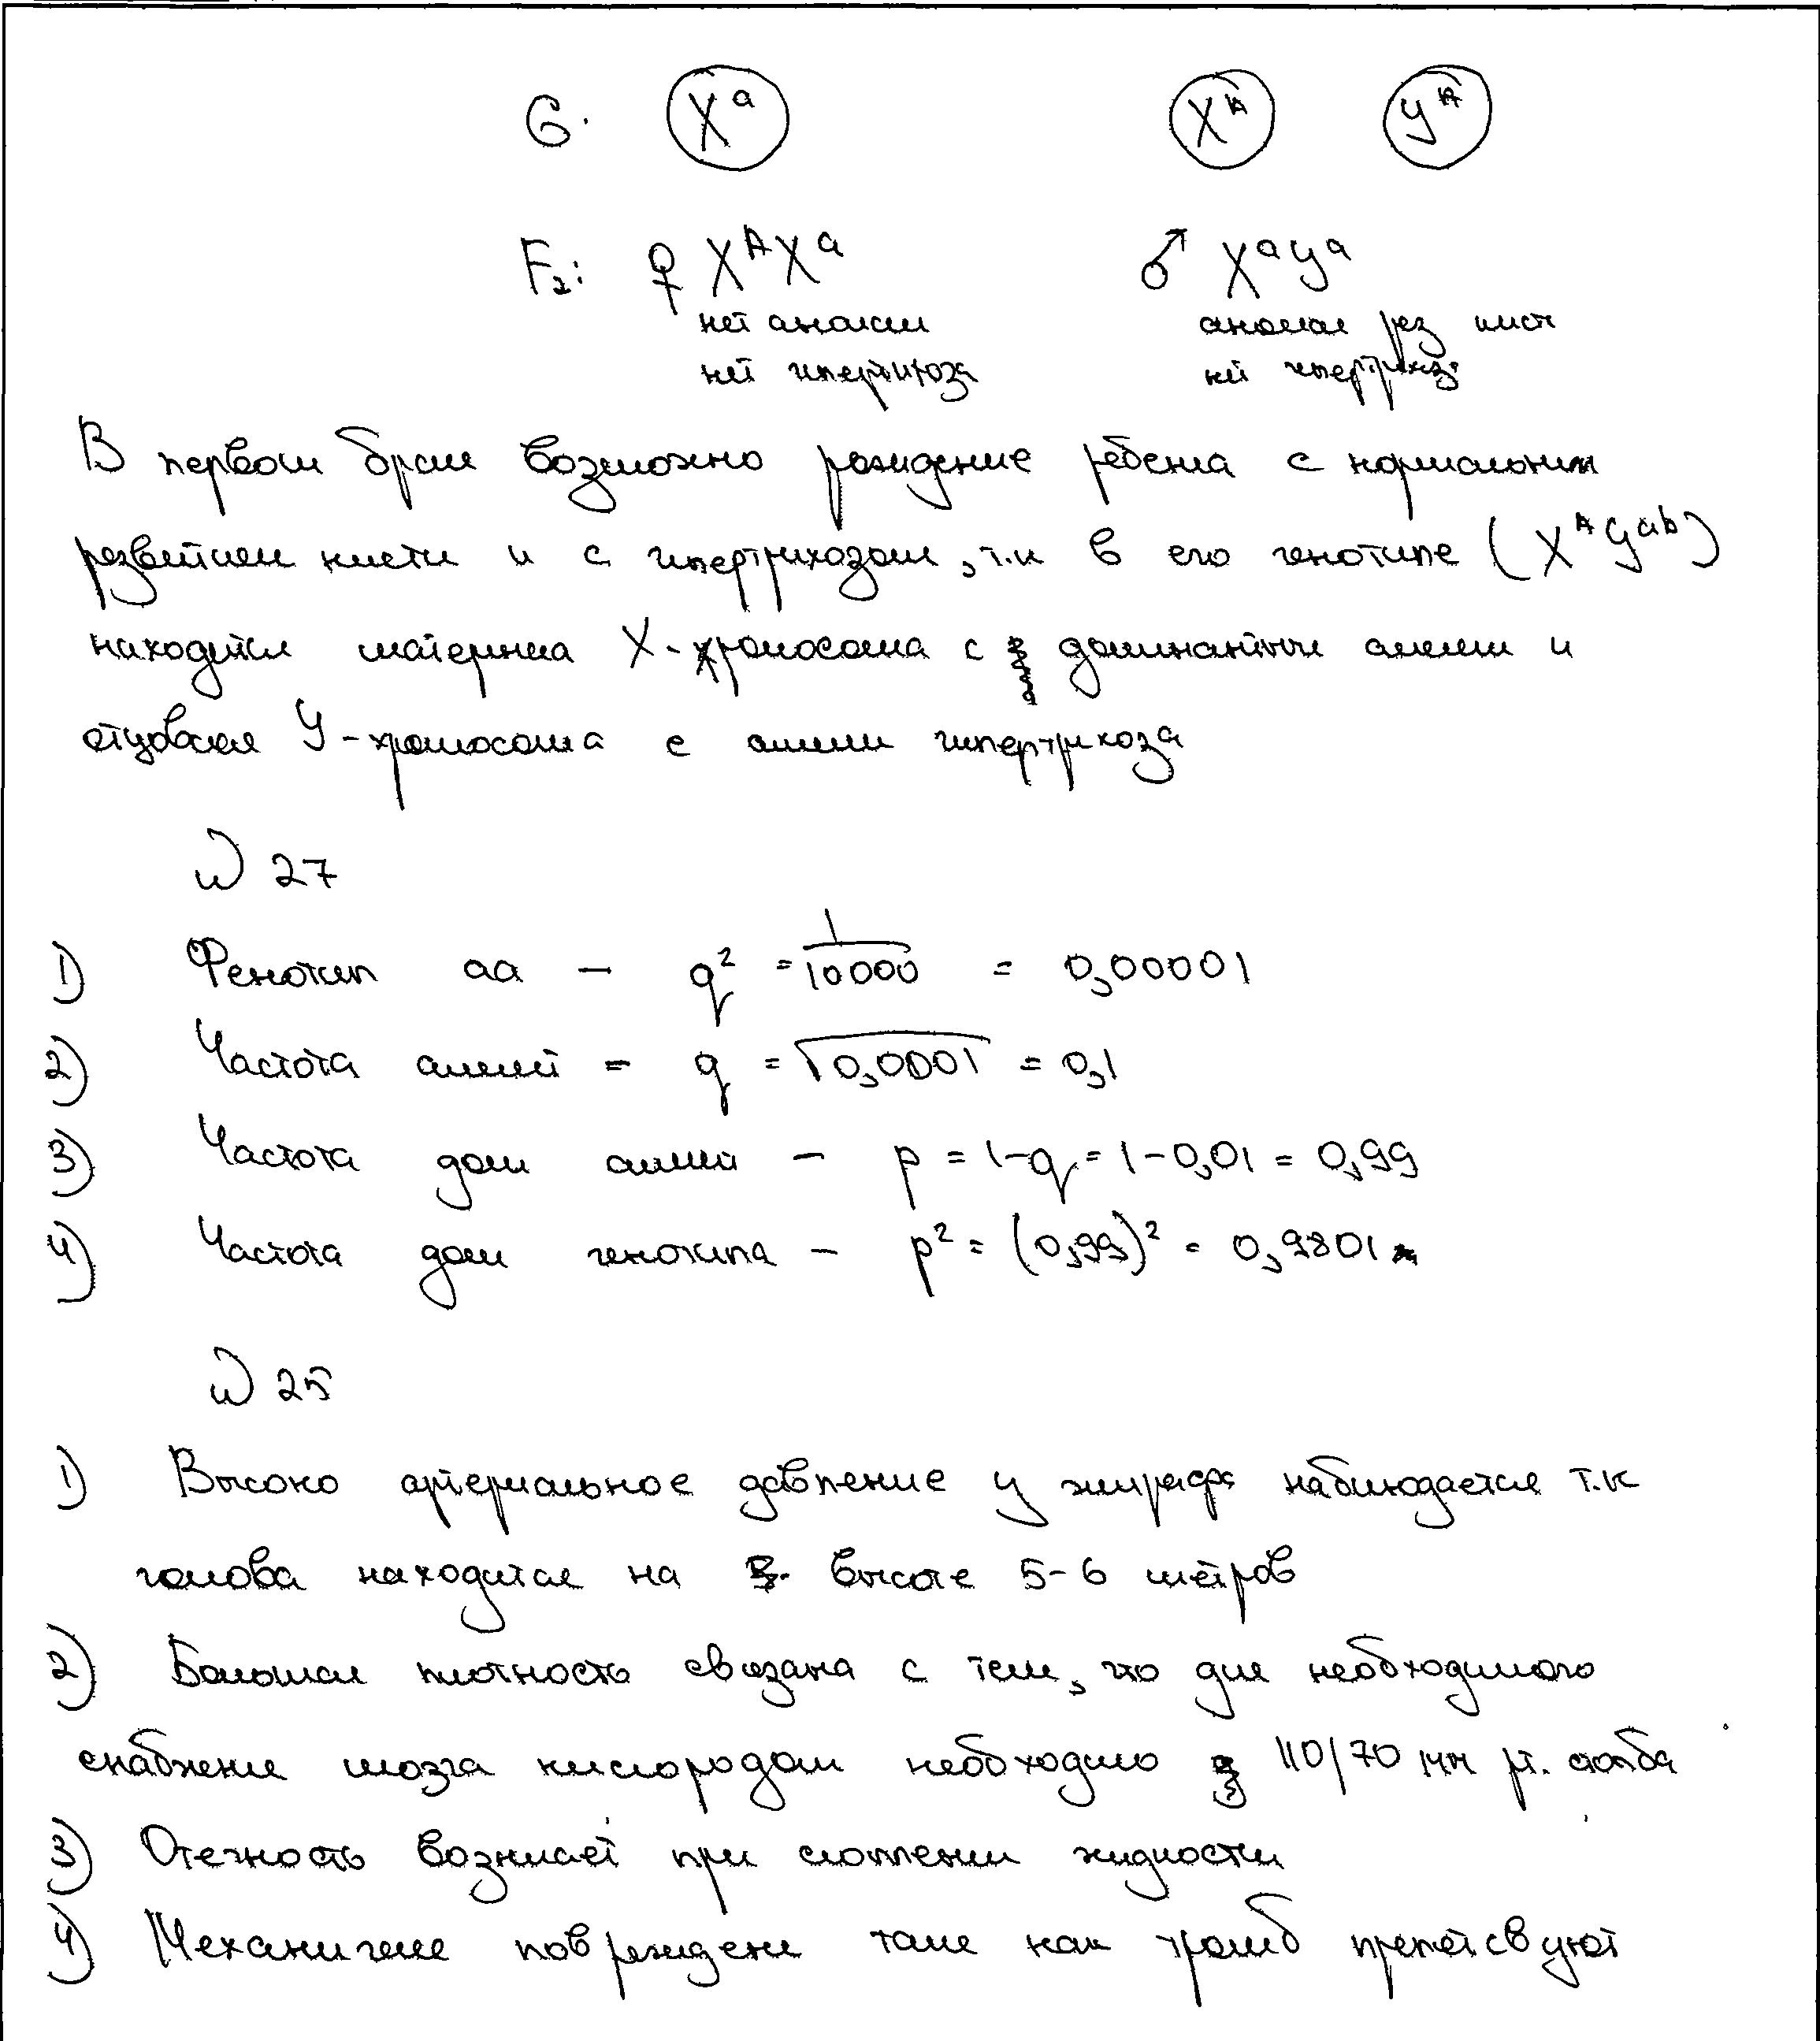 G. X^a X^A У^A
F₂: ♀ X^A X^a ♂ X^a У^a
нет аномалии аномал раз кист
нет гипертрихоза нет гипертрихоз
В первом браке возможно рождение ребенка с нормальным
развитием кисти и с гипертрихозом, т.к в его генотипе (X^A У^ab)
находится материна X-хромосома с доминантным аллелем и
отцовская У-хромосома с аллели гипертрихоза
№ 27
1) Фенотип aa – q² = 1/10000 = 0,00001
2) Частота аллелей – q = √0,0001 = 0,1
3) Частота дом аллели – p = 1-q = 1-0,01 = 0,99
4) Частота дом генотипа – p² = (0,99)² = 0,9801
№ 25
1) Высоко артериальное давление у жирафа наблюдается т.к
голова находится на высоте 5-6 метров
2) Большая плотность связана с тем, что для необходимого
снабжения мозга кислородом необходимо 110/70 мм рт. столба
3) Отечность возникает при скоплении жидкости
4) Механические повреждения такие как тромб препятсвуют